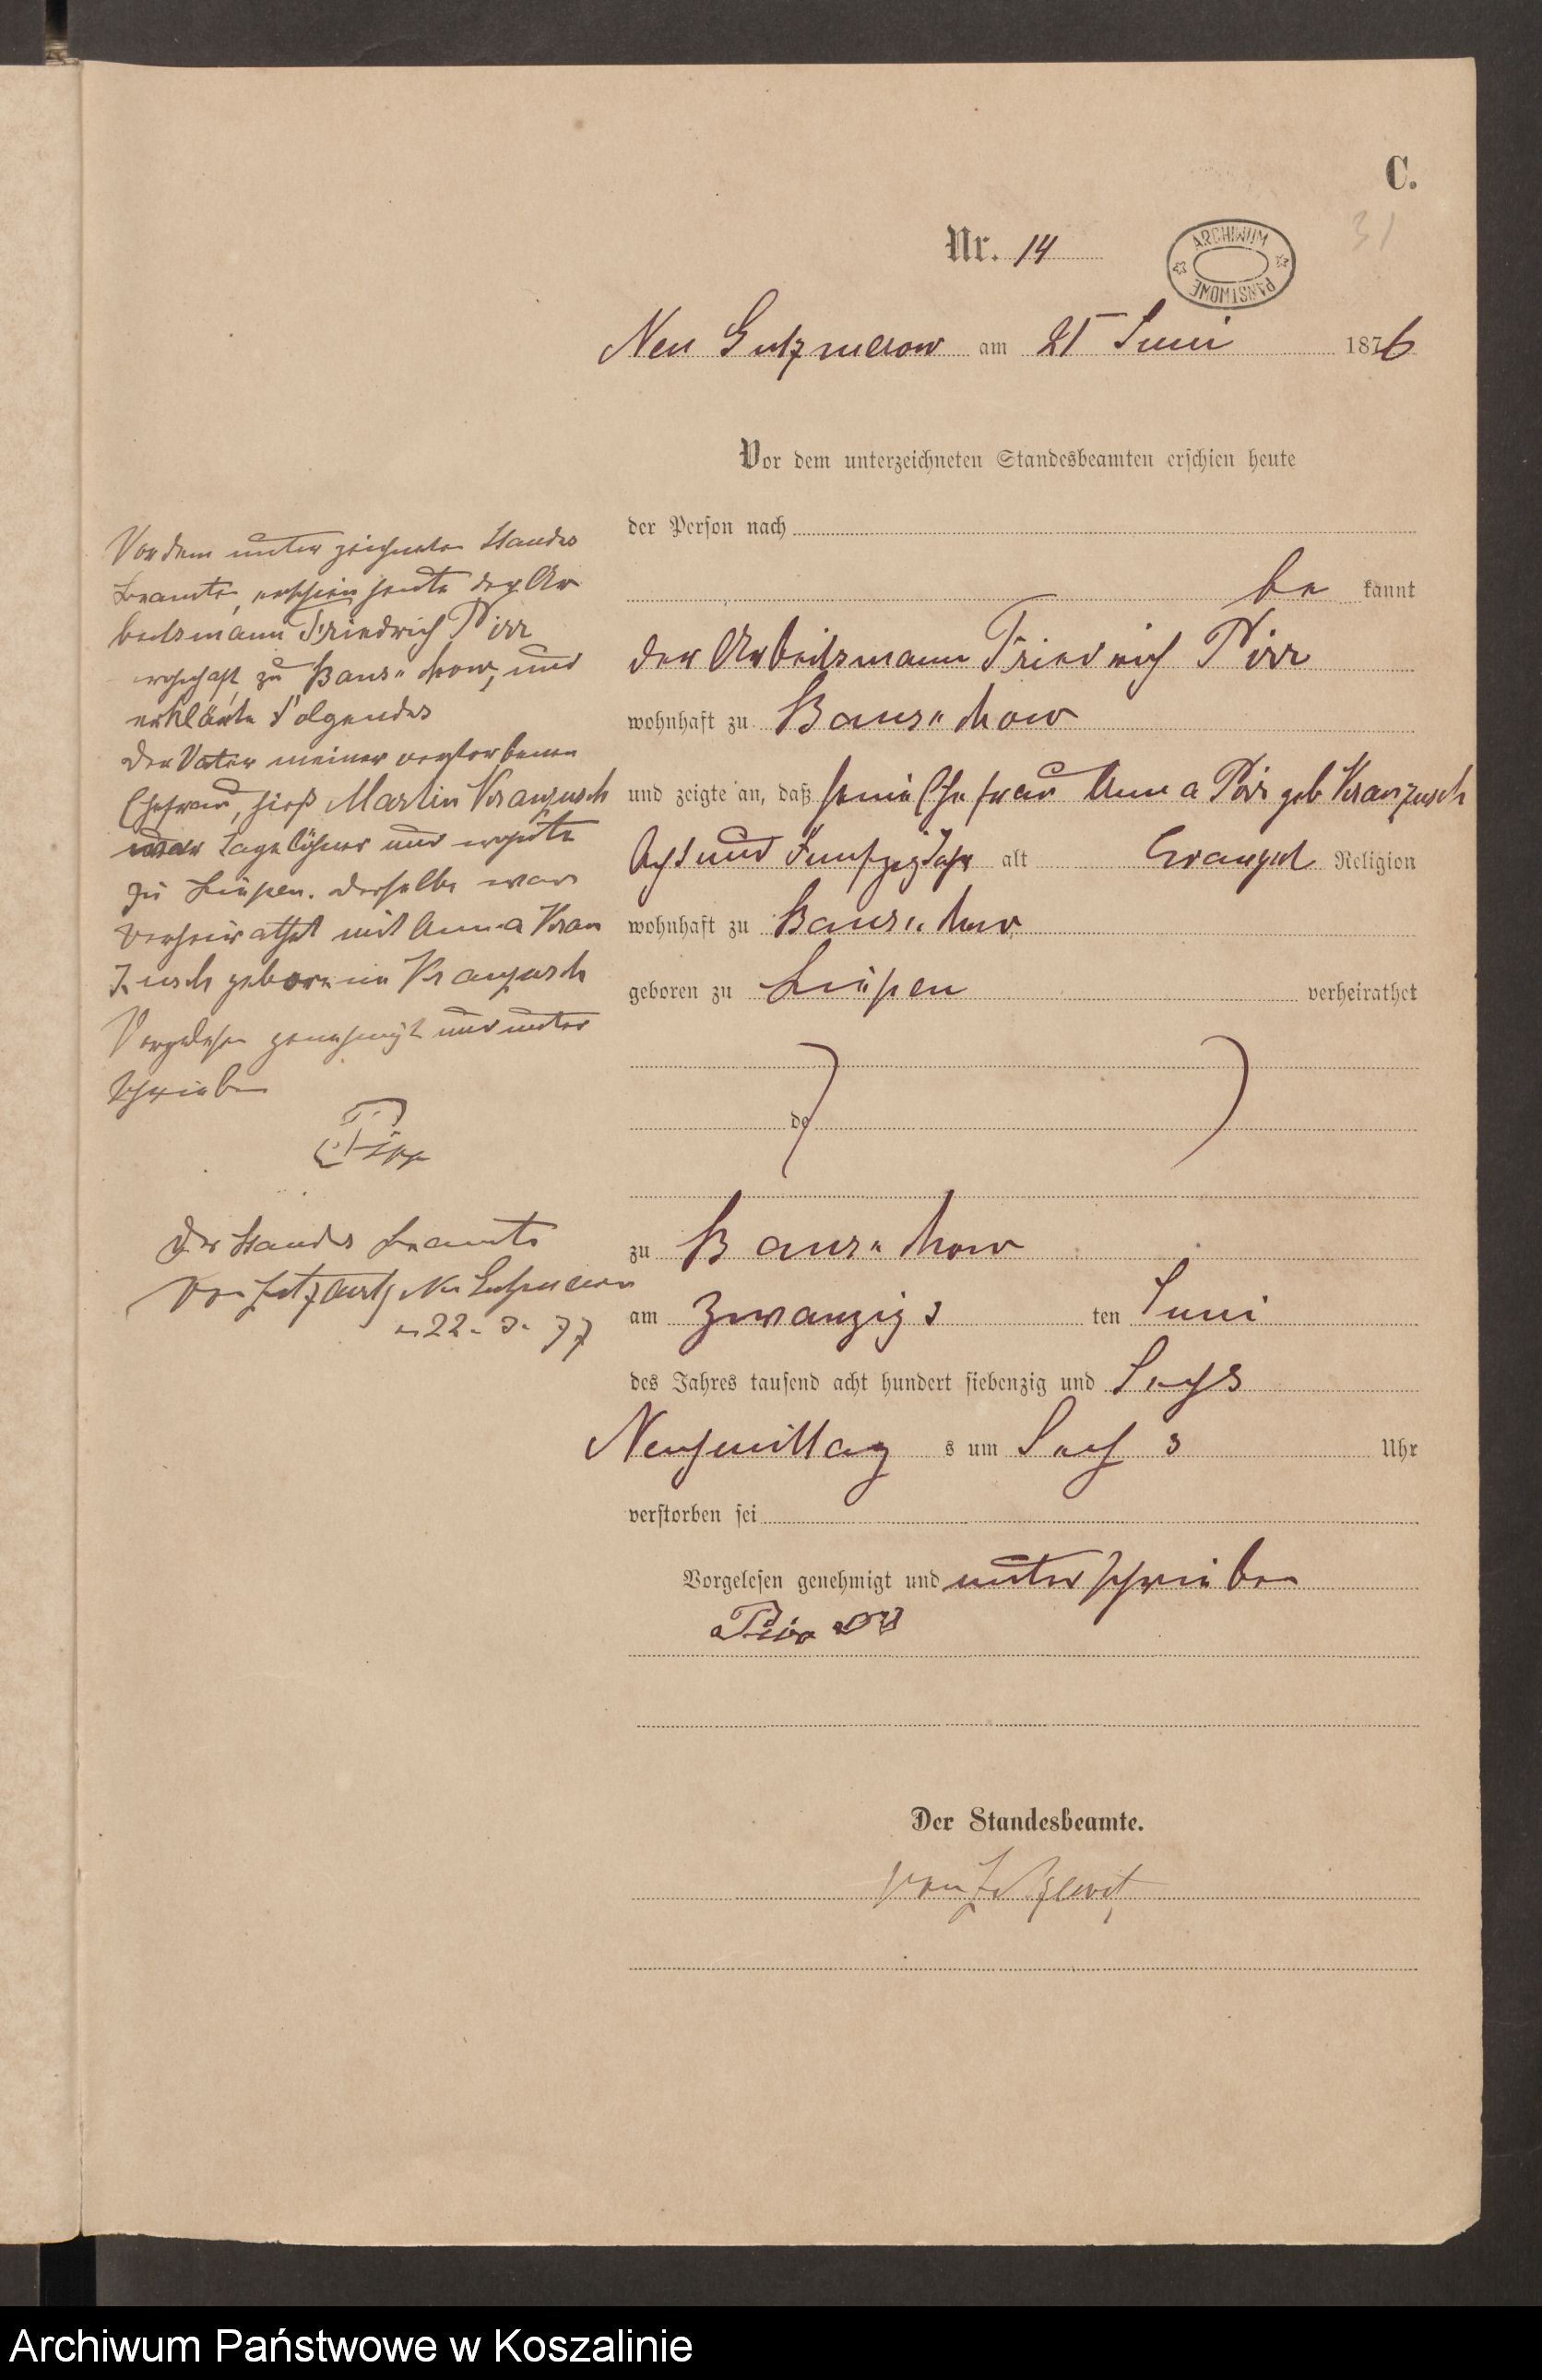 C.
31
Nr. 14
ARCHIWUM PAŃSTWOWE
Neu Gutzmerow am 21 Juni 1876
Vor dem unterzeichneten Standesbeamten erschien heute
der Person nach
be kannt
der Arbeitsmann Friedrich Pirr
wohnhaft zu
und zeigte an, daß seine Ehefrau Anna Pirr geb Kranzusch
Acht und Funfzig Jahr alt Evangel Religion
wohnhaft zu
geboren zu Lüpen verheirathet
de
zu
am Zwanzigs ten Juni
des Jahres tausend acht hundert siebenzig und Sechs
Nachmittag s um Sechs Uhr
verstorben sei
Vorgelesen genehmigt und unterschrieben
Pirr
Der Standesbeamte.
von
Vor dem unter zeichneten Standes
beamte, erschien heute der Ar
beitsmann Friedrich Pirr
wohnhaft zu und
erklärte Folgendes
Der Vater meiner verstorbenen
Ehefrau, hieß Martin Kranzusch
war Tagelöhner und wohnte
zu Lüpen. derselbe war
verheirathet mit Anna Kran
zusch geborene Kranzusch
Vorgelesen genehmigt und unter
schrieben
Pirr
Der Standes beamte
von
22. 3. 77
Archiwum Państwowe w Koszalinie